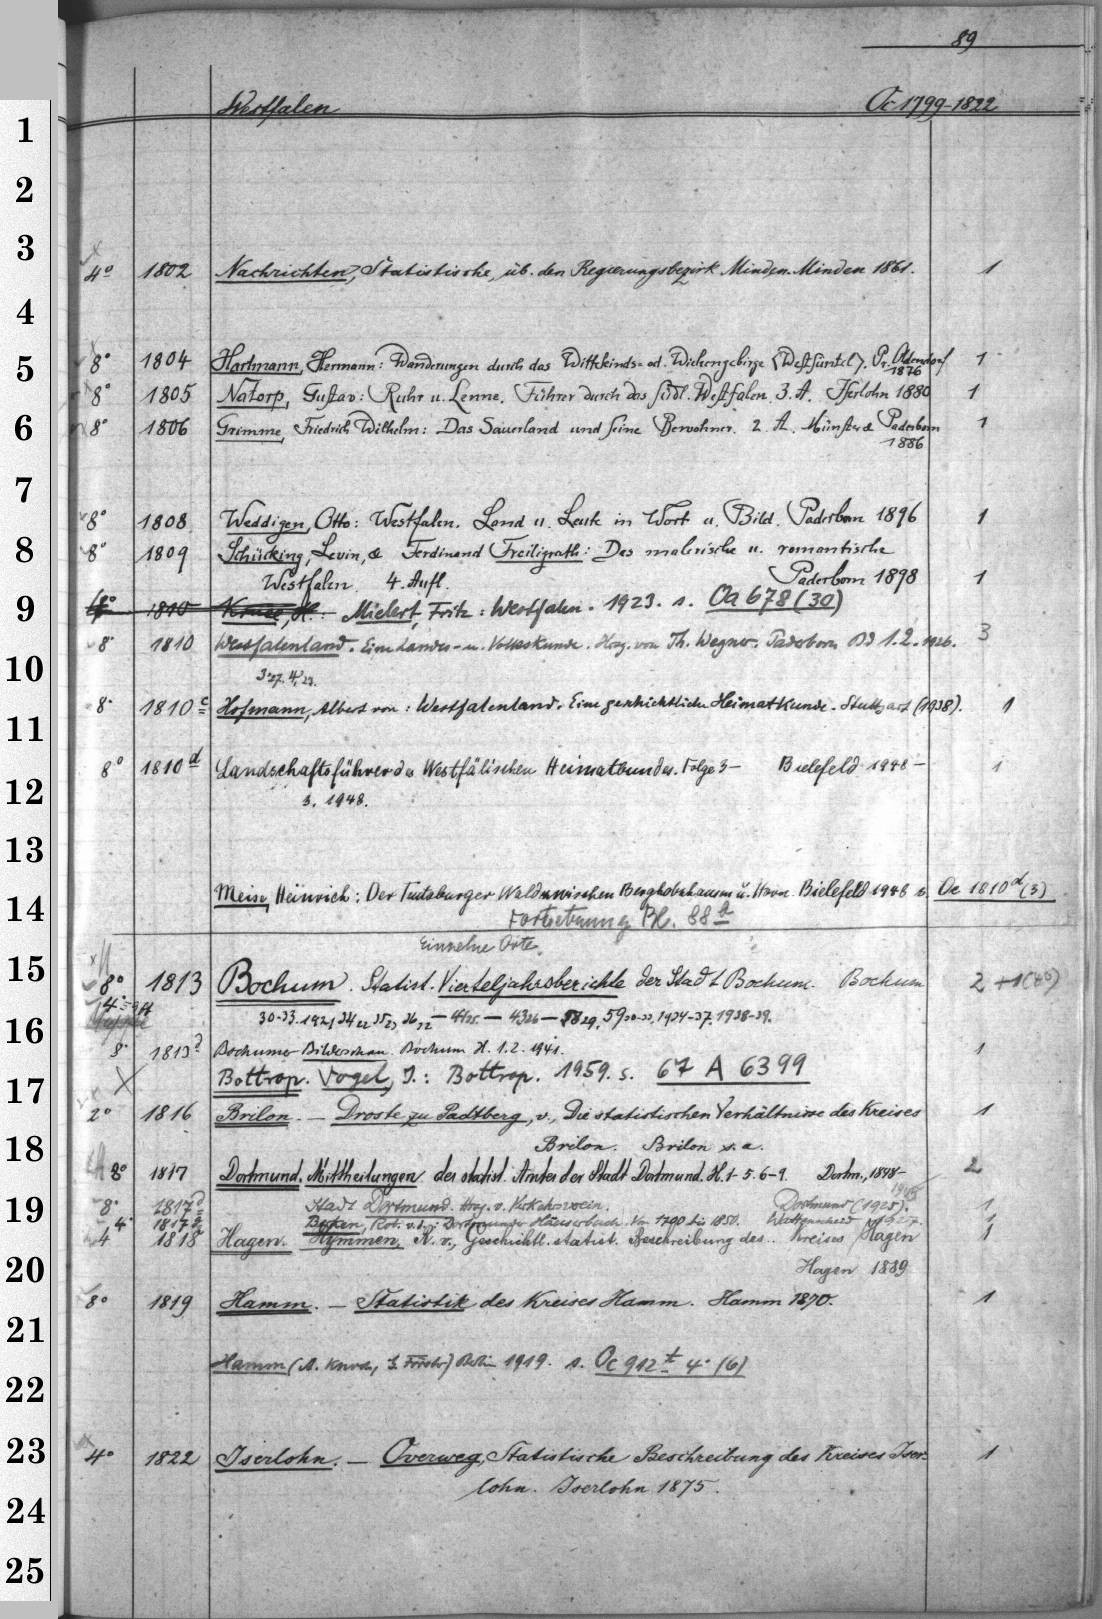 89
Westfalen Oc 1799-1822
1
2
3
4° 1802 Nachrichten, Statistische, üb. den Regierungsbezirk Minden. Minden 1861. 1
4
8° 1804 Hartmann, Hermann: Wanderungen durch das Wittekinds- od. Wiehengebirge (Westsüntel). Pr. Oldendorf 1
5
1876
8° 1805 Natorp, Gustav: Ruhr u. Lenne. Führer durch das südl. Westfalen. 3. A. Iserlohn 1880 1
6
8° 1806 Grimme, Friedrich Wilhelm: Das Sauerland und seine Bewohner. 2. A. Münster & Paderborn 1
1886
7
8° 1808 Weddigen, Otto: Westfalen. Land u. Leute in Wort u. Bild. Paderborn 1896 1
8
8° 1809 Schücking, Levin, & Ferdinand Freiligrath: Das malerische u. romantische
Westfalen. 4. Aufl. Paderborn 1898 1
9
8° 1810 Mielert, Fritz: Westfalen. 1923. s. Oa 678 (30)
8° 1810 Westfalenland. Eine Landes- u. Volkskunde. Hrsg. von Th. Wegner. Paderborn Bd 1.2. 1926. 3
10
3.27. 4.
8° 1810 c Hofmann, Albert von: Westfalenland. Eine geschichtliche Heimatkunde. Stuttgart (1938). 1
11
8° 1810 d Landschaftsführer des Westfälischen Heimatbundes. Folge 3- Bielefeld 1948 - 1
12
3. 1948.
13
Meise, Heinrich: Der Teutoburger Wald zwischen u. Bielefeld 1948 s. Oc 1810 d (3)
14
Fortsetzung Bl. 88
Einzelne Orte.
15
8° 1813 Bochum. Statist. Vierteljahrsberichte der Stadt Bochum. Bochum 2 + 1
4°
30-33. 1921, 34 22 35 23 1934-37. 1938-39.
16
8° 1813 Bochumer Bilderschau. Bochum H. 1.2. 1941. 1
Bottrop. Vogel, J.: Bottrop. 1959. s. 67 A 6399
17
2° 1816 Brilon. — Droste zu Padtberg, v., Die statistischen Verhältnisse des Kreises 1
18
Brilon. Brilon s. a.
8° 1817 Dortmund. Mittheilungen des statist. Amtes der Stadt Dortmund. H. 1-5. 6-9. Dortm., 1898- 2
19
8° 1817 Stadt Dortmund. Hrsg. v. Dortmund (1925). 1
4° 1817 Rob. v. d.: Dortmunder Häuserbuch. Von 1700 bis 1850. 1927. 1
4° 1818 Hagen. Hymmen, K. v., Geschichtl. statist. Beschreibung des Kreises Hagen 1
20
Hagen 1889
8° 1819 Hamm. — Statistik des Kreises Hamm. Hamm 1870. 1
21
Hamm (A. Berlin 1919. s. Oc 912 t 4° (6)
22
23
4° 1822 Iserlohn. — Overweg, Statistische Beschreibung des Kreises Iser- 1
lohn. Iserlohn 1875.
24
25